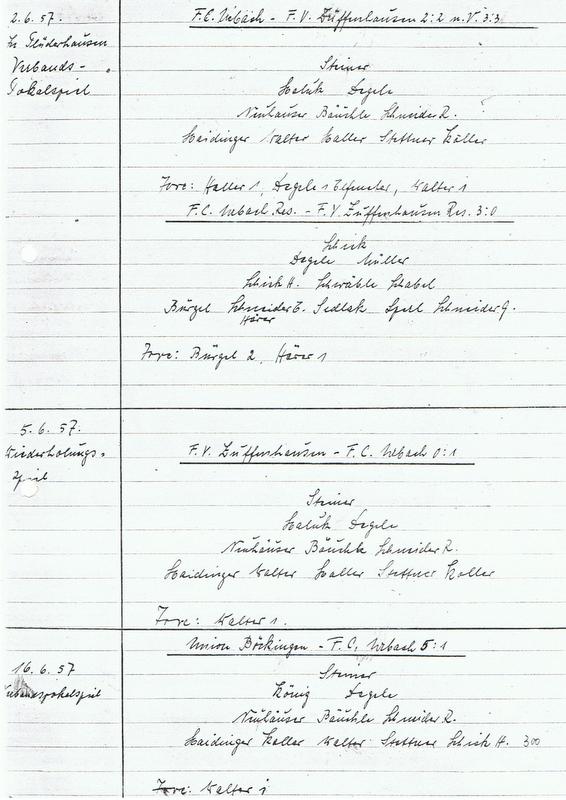 2.6.57.
In Plüderhausen
Verbands-
Pokalspiel
F.C. Urbach - F.V. Zuffenhausen 2:2 n.V. 3:3
Steiner
Haluk Degele
Neuhäuser Bäuchle Schneider R.
Haidinger Walter Haller Stettner Koller
Tore: Haller 1, Degele 1 Elfmeter, Walter 1
F.C. Urbach Res. - F.V. Zuffenhausen Res. 3:0
Schiek
Degele Müller
Schiek H. Schwäble Schabel
Bürgel Schneider E. Sedlak Sperl Schneider G.
Hörer
Tore: Bürgel 2, Hörer 1
5.6.57.
Wiederholungs-
spiel
F.V. Zuffenhausen - F.C. Urbach 0:1
Steiner
Haluk Degele
Neuhäuser Bäuchle Schneider R.
Haidinger Walter Haller Stettner Koller
Tore: Walter 1.
16.6.57
Verbandspokalspiel
Union Böckingen - F.C. Urbach 5:1
Steiner
König Degele
Neuhäuser Bäuchle Schneider R.
Haidinger Koller Walter Stettner Schiek H. 300
Tore: Walter 1